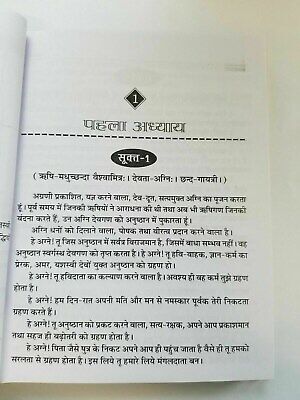 1
पहला अध्याय
सूक्त-1
( ऋषि-मधुच्छन्दा वैश्वामित्रः। देवता-अग्निः। छन्द-गायत्री। )
अग्रणी प्रकाशित, यज्ञ करने वाला, देव-दूत, सत्यमुक्त अग्नि का पूजन करता
हूं। पूर्व समय में जिनकी ऋषियों ने आराधना की थी तथा अब भी ऋषिगण जिनकी
वंदना करते हैं, उन अग्नि देवगण को अनुष्ठान में पुकारता हूं।
अग्नि धनों को दिलाने वाला, पोषक तथा वीरत्व प्रदान करने वाला है।
हे अग्ने! तू जिस अनुष्ठान में सर्वत्र विराजमान है, जिसमें बाधा सम्भव नहीं। वह
अनुष्ठान स्वर्गस्थ देवगण को तृप्त करता है। हे अग्ने! तू हवि-वाहक, ज्ञान-कर्म का
प्रेरक, अमर, यशस्वी देवों युक्त अनुष्ठान को ग्रहण हो।
हे अग्ने! तू हविदाता का कल्याण करने वाला है। अवश्य ही वह कर्म तुझे ग्रहण
होता है।
हे अग्ने! हम दिन-रात अपनी मति और मन से नमस्कार पूर्वक तेरी निकटता
ग्रहण करते हैं।
हे अग्ने! तू अनुष्ठान को प्रकट करने वाला, सत्य-रक्षक, अपने आप प्रकाशमान
तथा सहज ही बढ़ोतरी को ग्रहण होता है।
हे अग्ने! पिता जैसे पुत्र के निकट अपने आप ही पहुंच जाता है वैसे ही तू हमको
सरलता से ग्रहण होता है। इस लिये तू हमारे लिये मंगलदाता बन।